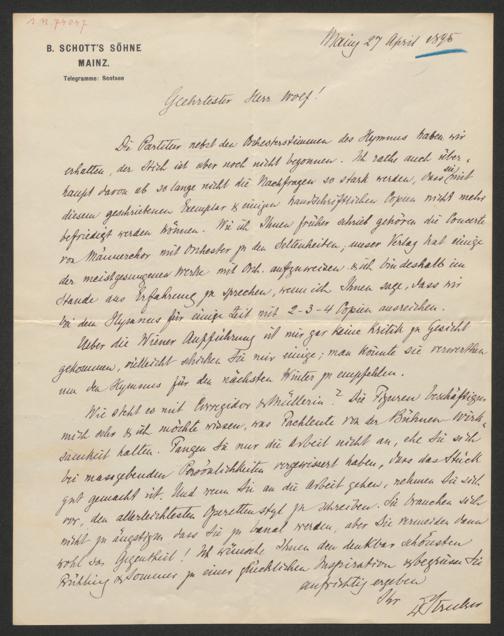 B. SCHOTT'S SÖHNE
MAINZ.
Telegramme: Scotson
Mainz 27 April 1895
Geehrtester Herr Wolf!
Die Partitur nebst den Orchesterstimmen des Hymnus haben wir
erhalten, der Stich ist aber noch nicht begonnen. Ich rathe auch über-
haupt davon ab so lange nicht die Nachfragen so stark werden, dass sie mit
diesem geschriebenen Exemplar & einigen handschriftlichen Copien nicht mehr
befriedigt werden können. Wie ich Ihnen früher schrieb gehören die Concerte
von Männerchor mit Orchester zu den Seltenheiten; unser Verlag hat einige
der meistgesungenen Werke mit Orch. aufzuweisen & ich bin deshalb im
Stande aus Erfahrung zu sprechen, wenn ich Ihnen sage, dass wir
bei dem Hymnus für einige Zeit mit 2-3-4 Copien ausreichen.
Ueber die Wiener Aufführung ist mir gar keine Kritik zu Gesicht
gekommen, vielleicht schicken Sie mir einige; man könnte sie verwerthen
um den Hymnus für den nächsten Winter zu empfehlen.
Wie steht es mit Corregidor & Müllerin? Die Figuren beschäftigen
mich sehr & ich möchte wissen, was Fachleute von der Bühnen Wirk-
samkeit halten. Fangen Sie nur die Arbeit nicht an, ehe Sie sich
bei massgebenden Persönlichkeiten vergewissert haben, dass das Stück
gut gemacht ist. Und wenn Sie an die Arbeit gehen, nehmen Sie sich
vor, den allerleichtesten Operettenstyl zu schreiben. Sie brauchen sich
nicht zu ängstigen dass Sie zu banal werden, aber Sie vermeiden dann
wohl das Gegentheil! Ich wünsche Ihnen den denkbar schönsten
Frühling & Sommer zu einer glücklichen Inspiration & begrüsse Sie
aufrichtig ergeben
Ihr
Strecker